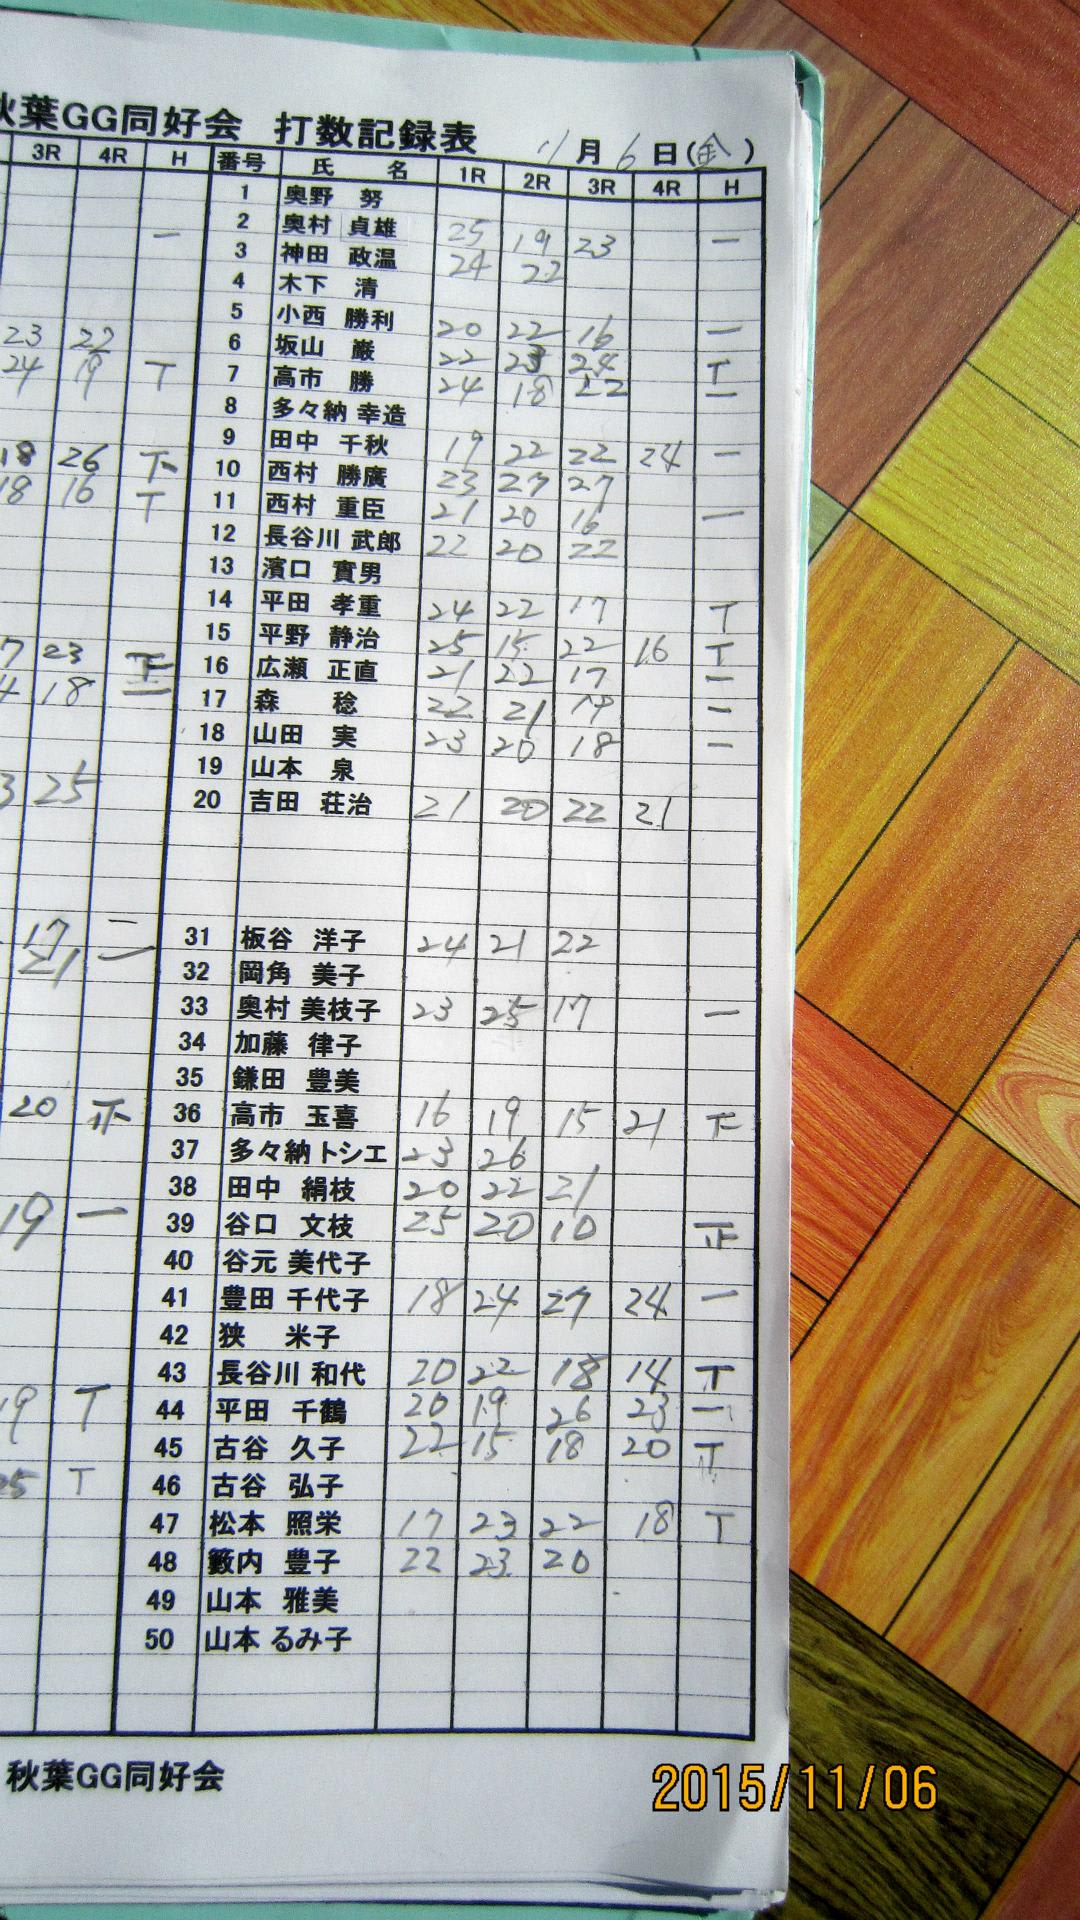 秋葉GG同好会 打数記録表 11月6日(金)
3R 4R H 番号 氏 名 1R 2R 3R 4R H
1 奥野 努
一 2 奥村 貞雄 25 19 23 一
3 神田 政温 24 22
4 木下 清
5 小西 勝利 20 22 16 一
23 22 6 坂山 巌 22 23 24 T
24 19 T 7 高市 勝 24 18 22 一
8 多々納 幸造
9 田中 千秋 19 22 22 24 一
18 26 下 10 西村 勝廣 23 27 27
18 16 T 11 西村 重臣 21 20 16 一
12 長谷川 武郎 22 20 22
13 濱口 實男
14 平田 孝重 24 22 17 T
7 23 15 平野 静治 25 15 22 16 T
4 18 16 広瀬 正直 21 22 17 一
17 森 稔 22 21 19 一
18 山田 実 23 20 18 一
3 25 19 山本 泉
20 吉田 荘治 21 20 22 21
17 二 31 板谷 洋子 24 21 22
21 一 32 岡角 美子
33 奥村 美枝子 23 25 17 一
34 加藤 律子
35 鎌田 豊美
20 36 高市 玉喜 16 19 15 21 下
37 多々納 トシエ 23 26
38 田中 絹枝 20 22 21
19 一 39 谷口 文枝 25 20 10 正
40 谷元 美代子
41 豊田 千代子 18 24 27 24 一
42 狭 米子
43 長谷川 和代 20 22 18 14 T
19 T 44 平田 千鶴 20 19 26 23 一
45 古谷 久子 22 15 18 20
25 T 46 古谷 弘子
47 松本 照栄 17 23 22 18 T
48 籔内 豊子 22 23 20
49 山本 雅美
50 山本 るみ子
秋葉GG同好会
2015/11/06